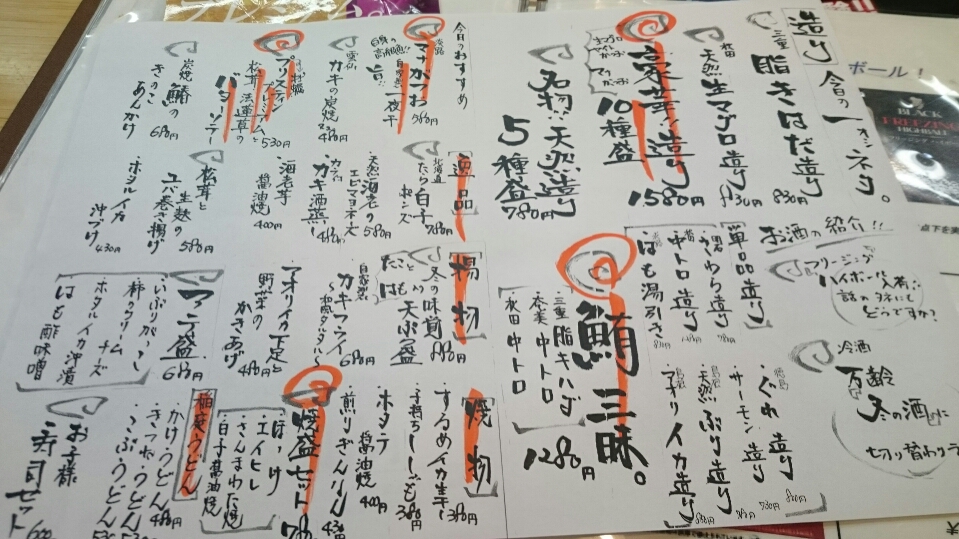 造り
今日の一オシネタ。
三重
脂きはだ造り
830円
秋田
天然生マグロ造り
豪華!!造り
10種盛
1580円
名物!!天然造り
5種盛
780円
お酒の紹介!!
フリージング
ハイボール入荷!!
話のネタにも
どうですか?
冷酒
万齢
冬の酒に
切り替わり
単品造り
・さわら造り
・中トロ造り
・はも湯引き
・サーモン造り
・天然ぶり造り
・アオリイカ造り
鮪三昧。
・三重脂キハダ
・中トロ
・秋田中トロ
1280円
今月のおすすめ
淡路
マナガつお
一夜干
580円
雲仙
カキの炭焼
480円
プレミアムと
松茸と法蓮草の
バターソテー
530円
炭焼鰆の
きのこあんかけ
680円
逸品
北海道
たら白子
ポンズ
780円
天然海老の
エビマヨネーズ
580円
カキ酒蒸し
480円
海老芋
醤油焼
400円
松茸と生麩の
ユバ巻き揚げ
580円
ホタルイカ
沖づけ
430円
揚物
冬の味覚
天ぷら盛
880円
自家製
カキフライ
~和風タルタル~
680円
アオリイカ下足と
野菜の
かきあげ
480円
アテ盛
680円
・いぶりがっこ
・柿クリームチーズ
・ホタルイカ沖漬
・はも酢味噌
焼物
するめイカ生干し
380円
子持ちししゃも
380円
ホタテ
醤油焼
400円
煎りぎんなん
430円
焼盛セット
・ほっけ
・エイヒレ
・さんまわた焼
・白子醤油焼
稲庭うどん
・かけうどん
480円
・きつねうどん
530円
・こぶうどん
530円
お子様
寿司セット
ボール!
BLACK
FREEZING
HIGHBALL